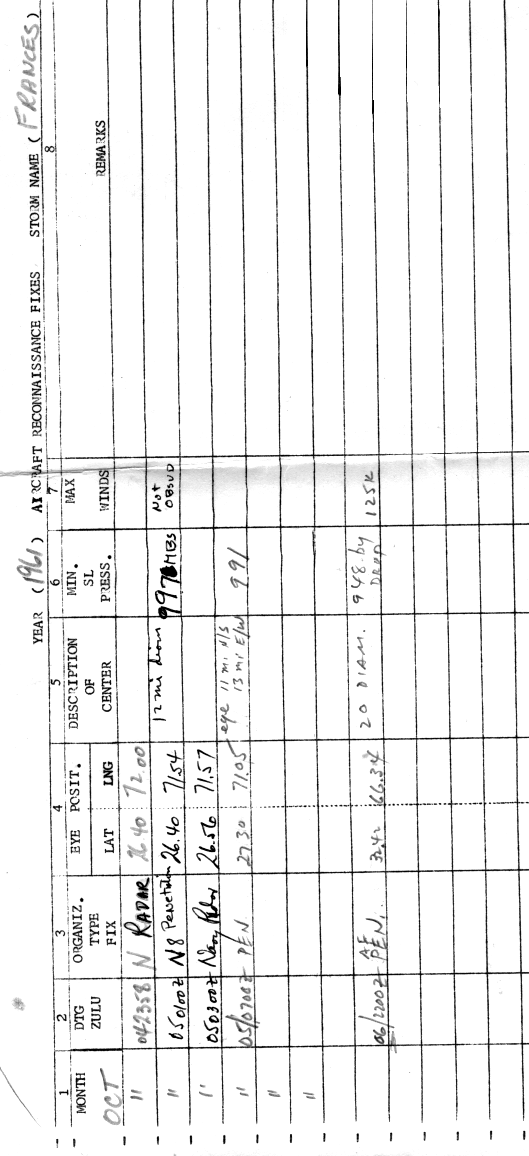 YEAR (1961) AIRCRAFT RECONNAISSANCE FIXES STORM NAME (FRANCES)
1 2 3 4 5 6 7 8
MONTH DTG ZULU ORGANIZ. TYPE FIX EYE POSIT. LAT LNG DESCRIPTION OF CENTER MIN. SL PRESS. MAX WINDS REMARKS
OCT
" 042358 N RADAR 26.40 72.00
" 050100Z N8 Penetration 26.40 71.54 12 mi diam 997 MBS Not OBSVD
" 050300Z Navy Radar 26.56 71.57
" 05/0700Z PEN 27.30 71.05 eye 11 mi N/S 13 mi E/W 991
"
"
06/2200Z AF PEN. 32.42 66.34 20 DIAM. 948 by DROP 125K